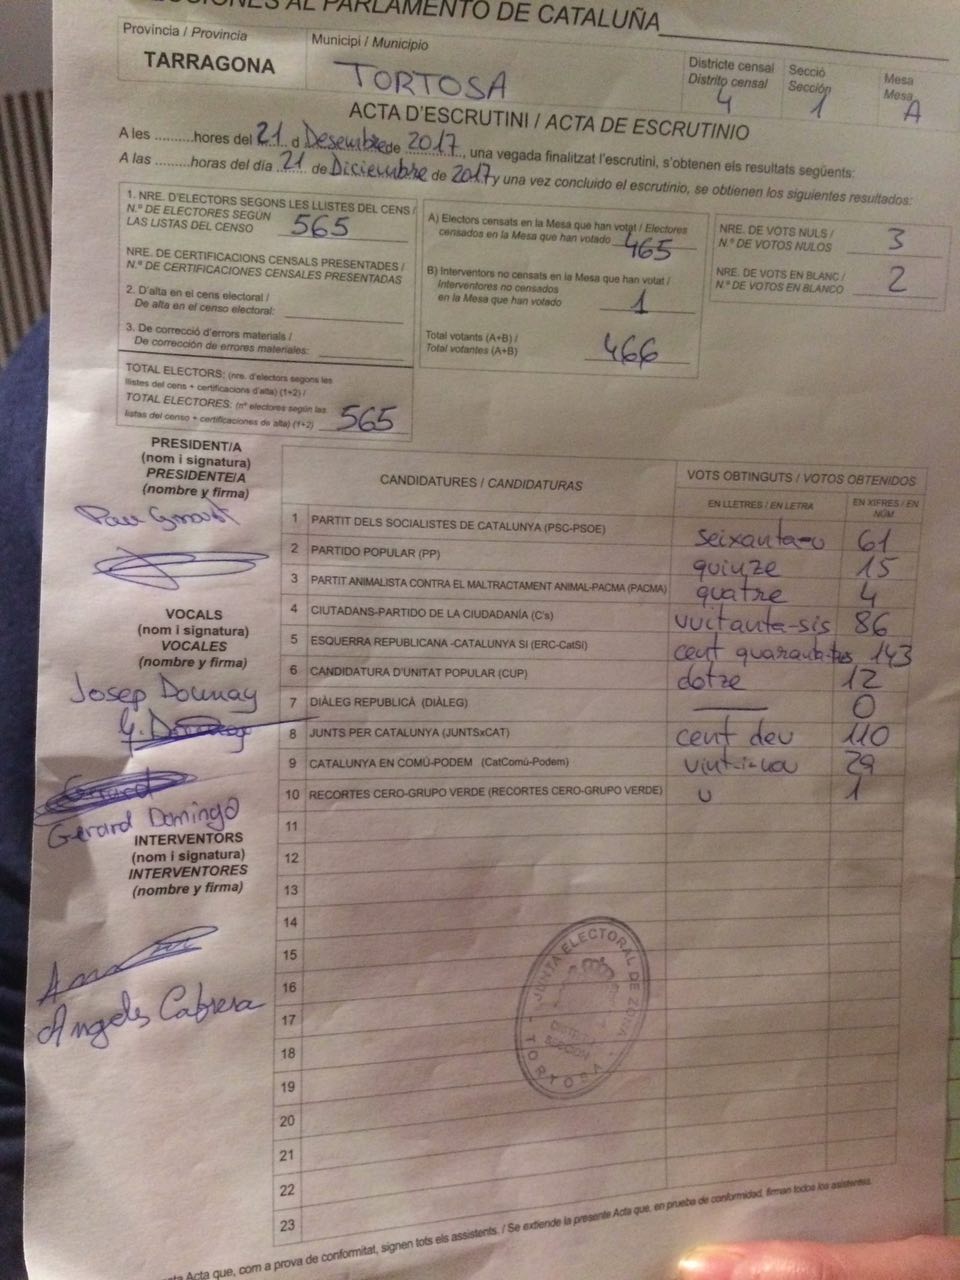 ECCIONES AL PARLAMENTO DE CATALUÑA
Província / Provincia
TARRAGONA
Municipi / Municipio
TORTOSA
Districte censal
Distrito censal
4
Secció
Sección
1
Mesa
Mesa
A
ACTA D'ESCRUTINI / ACTA DE ESCRUTINIO
A les .........hores del 21 d Desembre de 2017, una vegada finalitzat l'escrutini, s'obtenen els resultats següents:
A las .........horas del día 21 de Diciembre de 2017 y una vez concluido el escrutinio, se obtienen los siguientes resultados:
1. NRE. D'ELECTORS SEGONS LES LLISTES DEL CENS /
N.º DE ELECTORES SEGÚN
LAS LISTAS DEL CENSO 565
NRE. DE CERTIFICACIONS CENSALS PRESENTADES /
N.º DE CERTIFICACIONES CENSALES PRESENTADAS
2. D'alta en el cens electoral /
De alta en el censo electoral:
3. De correcció d'errors materials /
De corrección de errores materiales:
TOTAL ELECTORS: (nre. d'electors segons les
llistes del cens + certificacions d'alta) (1+2) /
TOTAL ELECTORES: (nº electores según las
listas del censo + certificaciones de alta) (1+2) 565
A) Electors censats en la Mesa que han votat / Electores
censados en la Mesa que han votado 465
B) Interventors no censats en la Mesa que han votat /
Interventores no censados
en la Mesa que han votado 1
Total votants (A+B) /
Total votantes (A+B) 466
NRE. DE VOTS NULS /
N.º DE VOTOS NULOS 3
NRE. DE VOTS EN BLANC /
N.º DE VOTOS EN BLANCO 2
PRESIDENT/A
(nom i signatura)
PRESIDENTE/A
(nombre y firma)
Pau
VOCALS
(nom i signatura)
VOCALES
(nombre y firma)
Josep
G. Domingo
Gerard
Gerard Domingo
INTERVENTORS
(nom i signatura)
INTERVENTORES
(nombre y firma)
Àngels Cabrera
CANDIDATURES / CANDIDATURAS
VOTS OBTINGUTS / VOTOS OBTENIDOS
EN LLETRES / EN LETRA
EN XIFRES / EN NÚM
1 PARTIT DELS SOCIALISTES DE CATALUNYA (PSC-PSOE) seixanta-u 61
2 PARTIDO POPULAR (PP) quinze 15
3 PARTIT ANIMALISTA CONTRA EL MALTRACTAMENT ANIMAL-PACMA (PACMA) quatre 4
4 CIUTADANS-PARTIDO DE LA CIUDADANÍA (C's) vuitanta-sis 86
5 ESQUERRA REPUBLICANA -CATALUNYA SI (ERC-CatSí) cent quaranta-tres 143
6 CANDIDATURA D'UNITAT POPULAR (CUP) dotze 12
7 DIÀLEG REPUBLICÀ (DIÀLEG) 0
8 JUNTS PER CATALUNYA (JUNTSxCAT) cent deu 110
9 CATALUNYA EN COMÚ-PODEM (CatComú-Podem) vint-i-nou 29
10 RECORTES CERO-GRUPO VERDE (RECORTES CERO-GRUPO VERDE) u 1
11
12
13
14
15
16
17
18
19
20
21
22
23
JUNTA ELECTORAL DE ZONA
SECCION
TORTOSA
Acta que, com a prova de conformitat, signen tots els assistents. / Se extiende la presente Acta que, en prueba de conformidad, firman todos los asistentes.